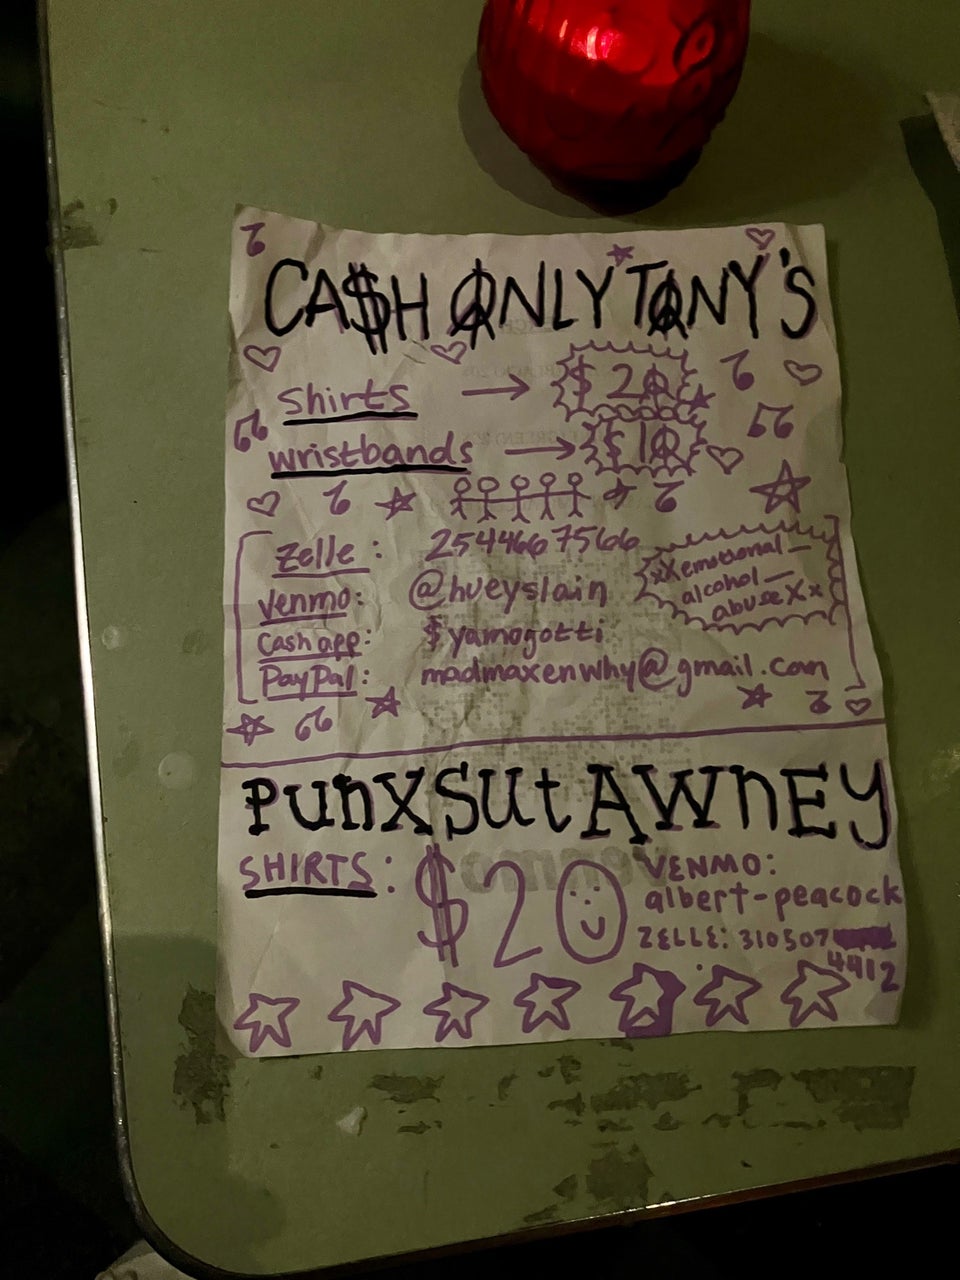 CA$H ONLY TONY'S
shirts → $20
wristbands → $10
zelle: 2544667566
venmo: @hueyslain
cash app: $yamogotti
PayPal: madmaxenwhy@gmail.com
xXemotional—
alcohol—
abuseXx
PUnXSUtAWnEY
SHIRTS: $20
VENMO:
albert-peacock
ZELLE: 310507
4412
venmo